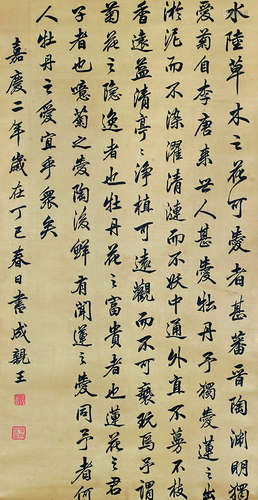 水陸草木之花可愛者甚蕃晉陶淵明獨
愛菊自李唐來世人甚愛牡丹予獨愛蓮之出
淤泥而不染濯清漣而不妖中通外直不蔓不枝
香遠益清亭〻淨植可遠觀而不可褻玩焉予謂
菊花之隱逸者也牡丹花之富貴者也蓮花之君
子者也噫菊之愛陶後鮮有聞蓮之愛同予者何
人牡丹之愛宜乎眾矣
嘉慶二年歲在丁巳春日書成親王